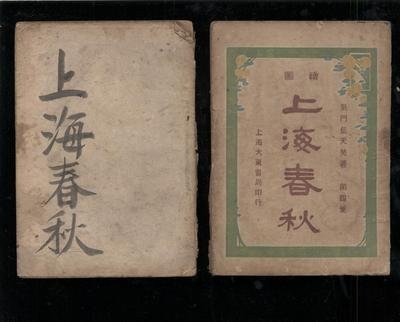 上海春秋
繪圖
吳門包天笑著
上海春秋
上海大東書局印行